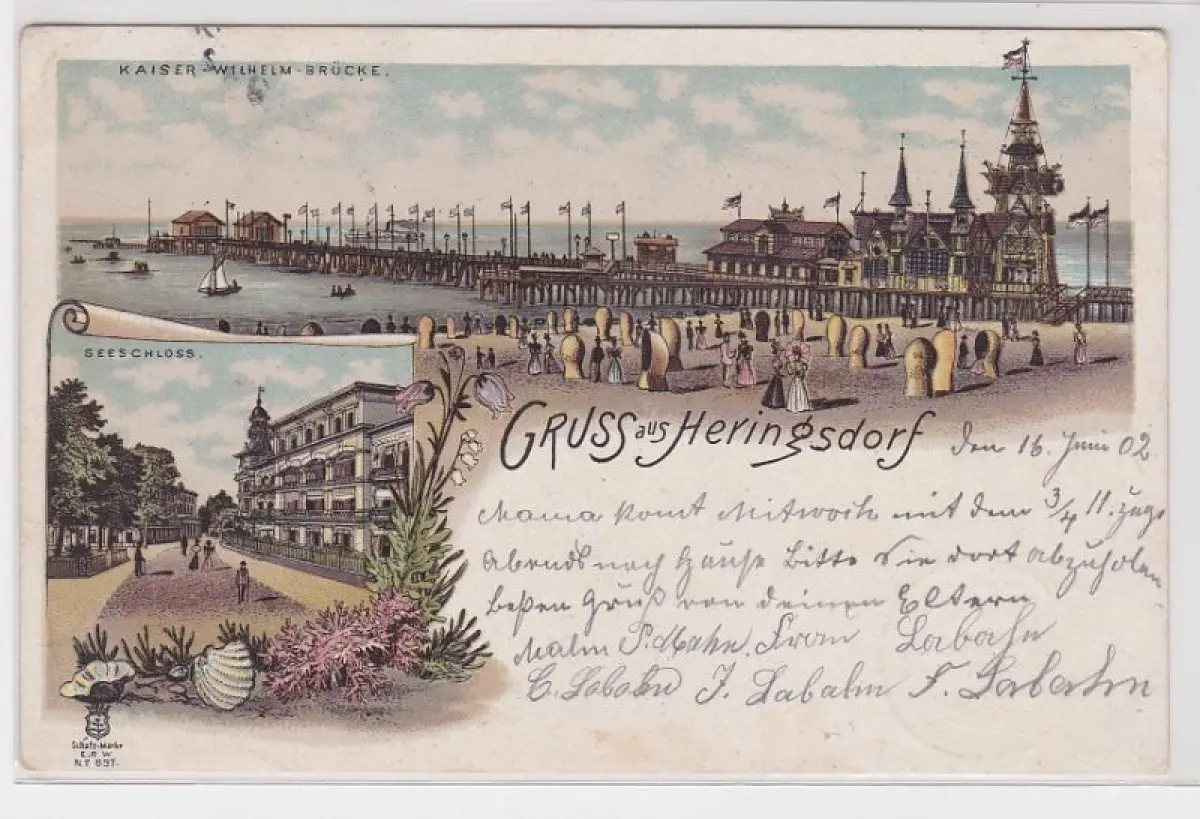 KAISER-WILHELM-BRÜCKE.
SEESCHLOSS.
GRUSS aus Heringsdorf
den 16. Juni 02
Mama komt Mitwoch mit dem 3/4 11. Zuge
Abends nach Hause Bitte Sie dort abzuholen
Beßen Gruß von deinen Eltern
P. Mahn. Frau Labahn
C. Labahn J. Labahn F. Labahn
Schutz-Marke
E.R.W.
NT 837.